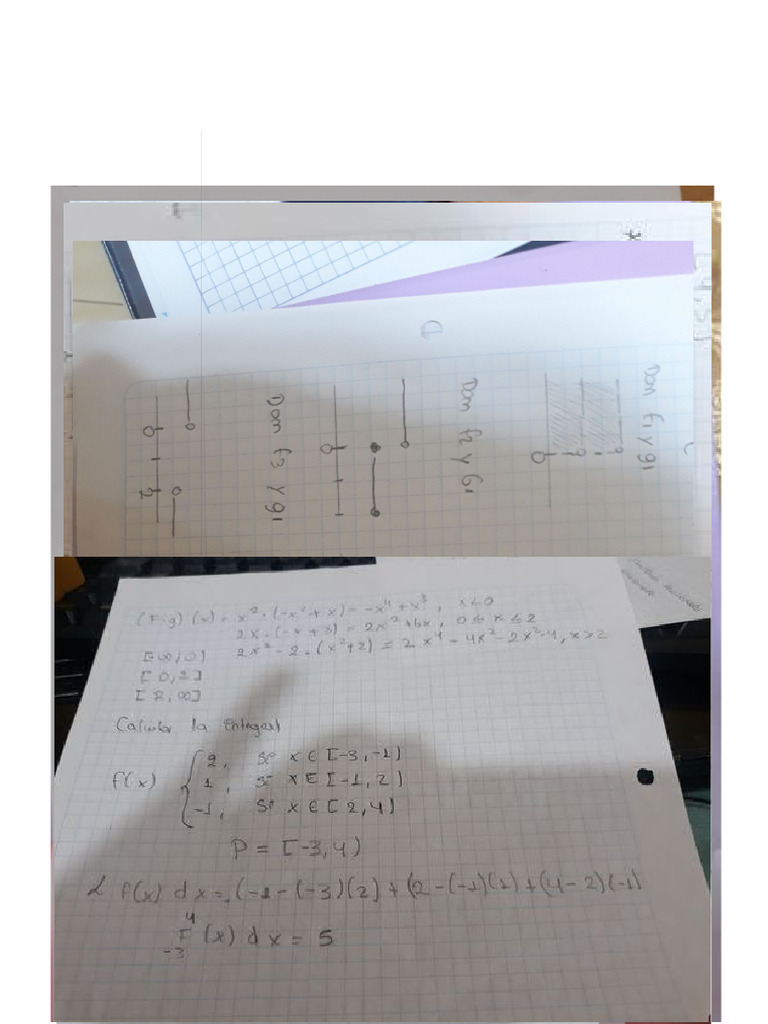 Dom f1 y g1
0
Dom f2 y G1
0
Dom f3 y g1
0 2
(F·g)(x) = x² · (-x² + x) = -x⁴ + x³, x ≤ 0
2x · (-x + 3) = 2x² + 6x, 0 ≤ x ≤ 2
[-∞, 0) 2x² - 2 · (x² + 2) = 2x⁴ - 4x² - 2x² - 4, x > 2
[0, 2]
[2, ∞]
Calcular la integral
f(x) { 2, si x ∈ [-3, -1)
1, si x ∈ [-1, 2)
-1, si x ∈ [2, 4)
P = [-3, 4)
f(x) dx = (-1 - (-3)(2) + (2 - (-1)(1) + (4 - 2)(-1)
4
F (x) dx = 5
-3